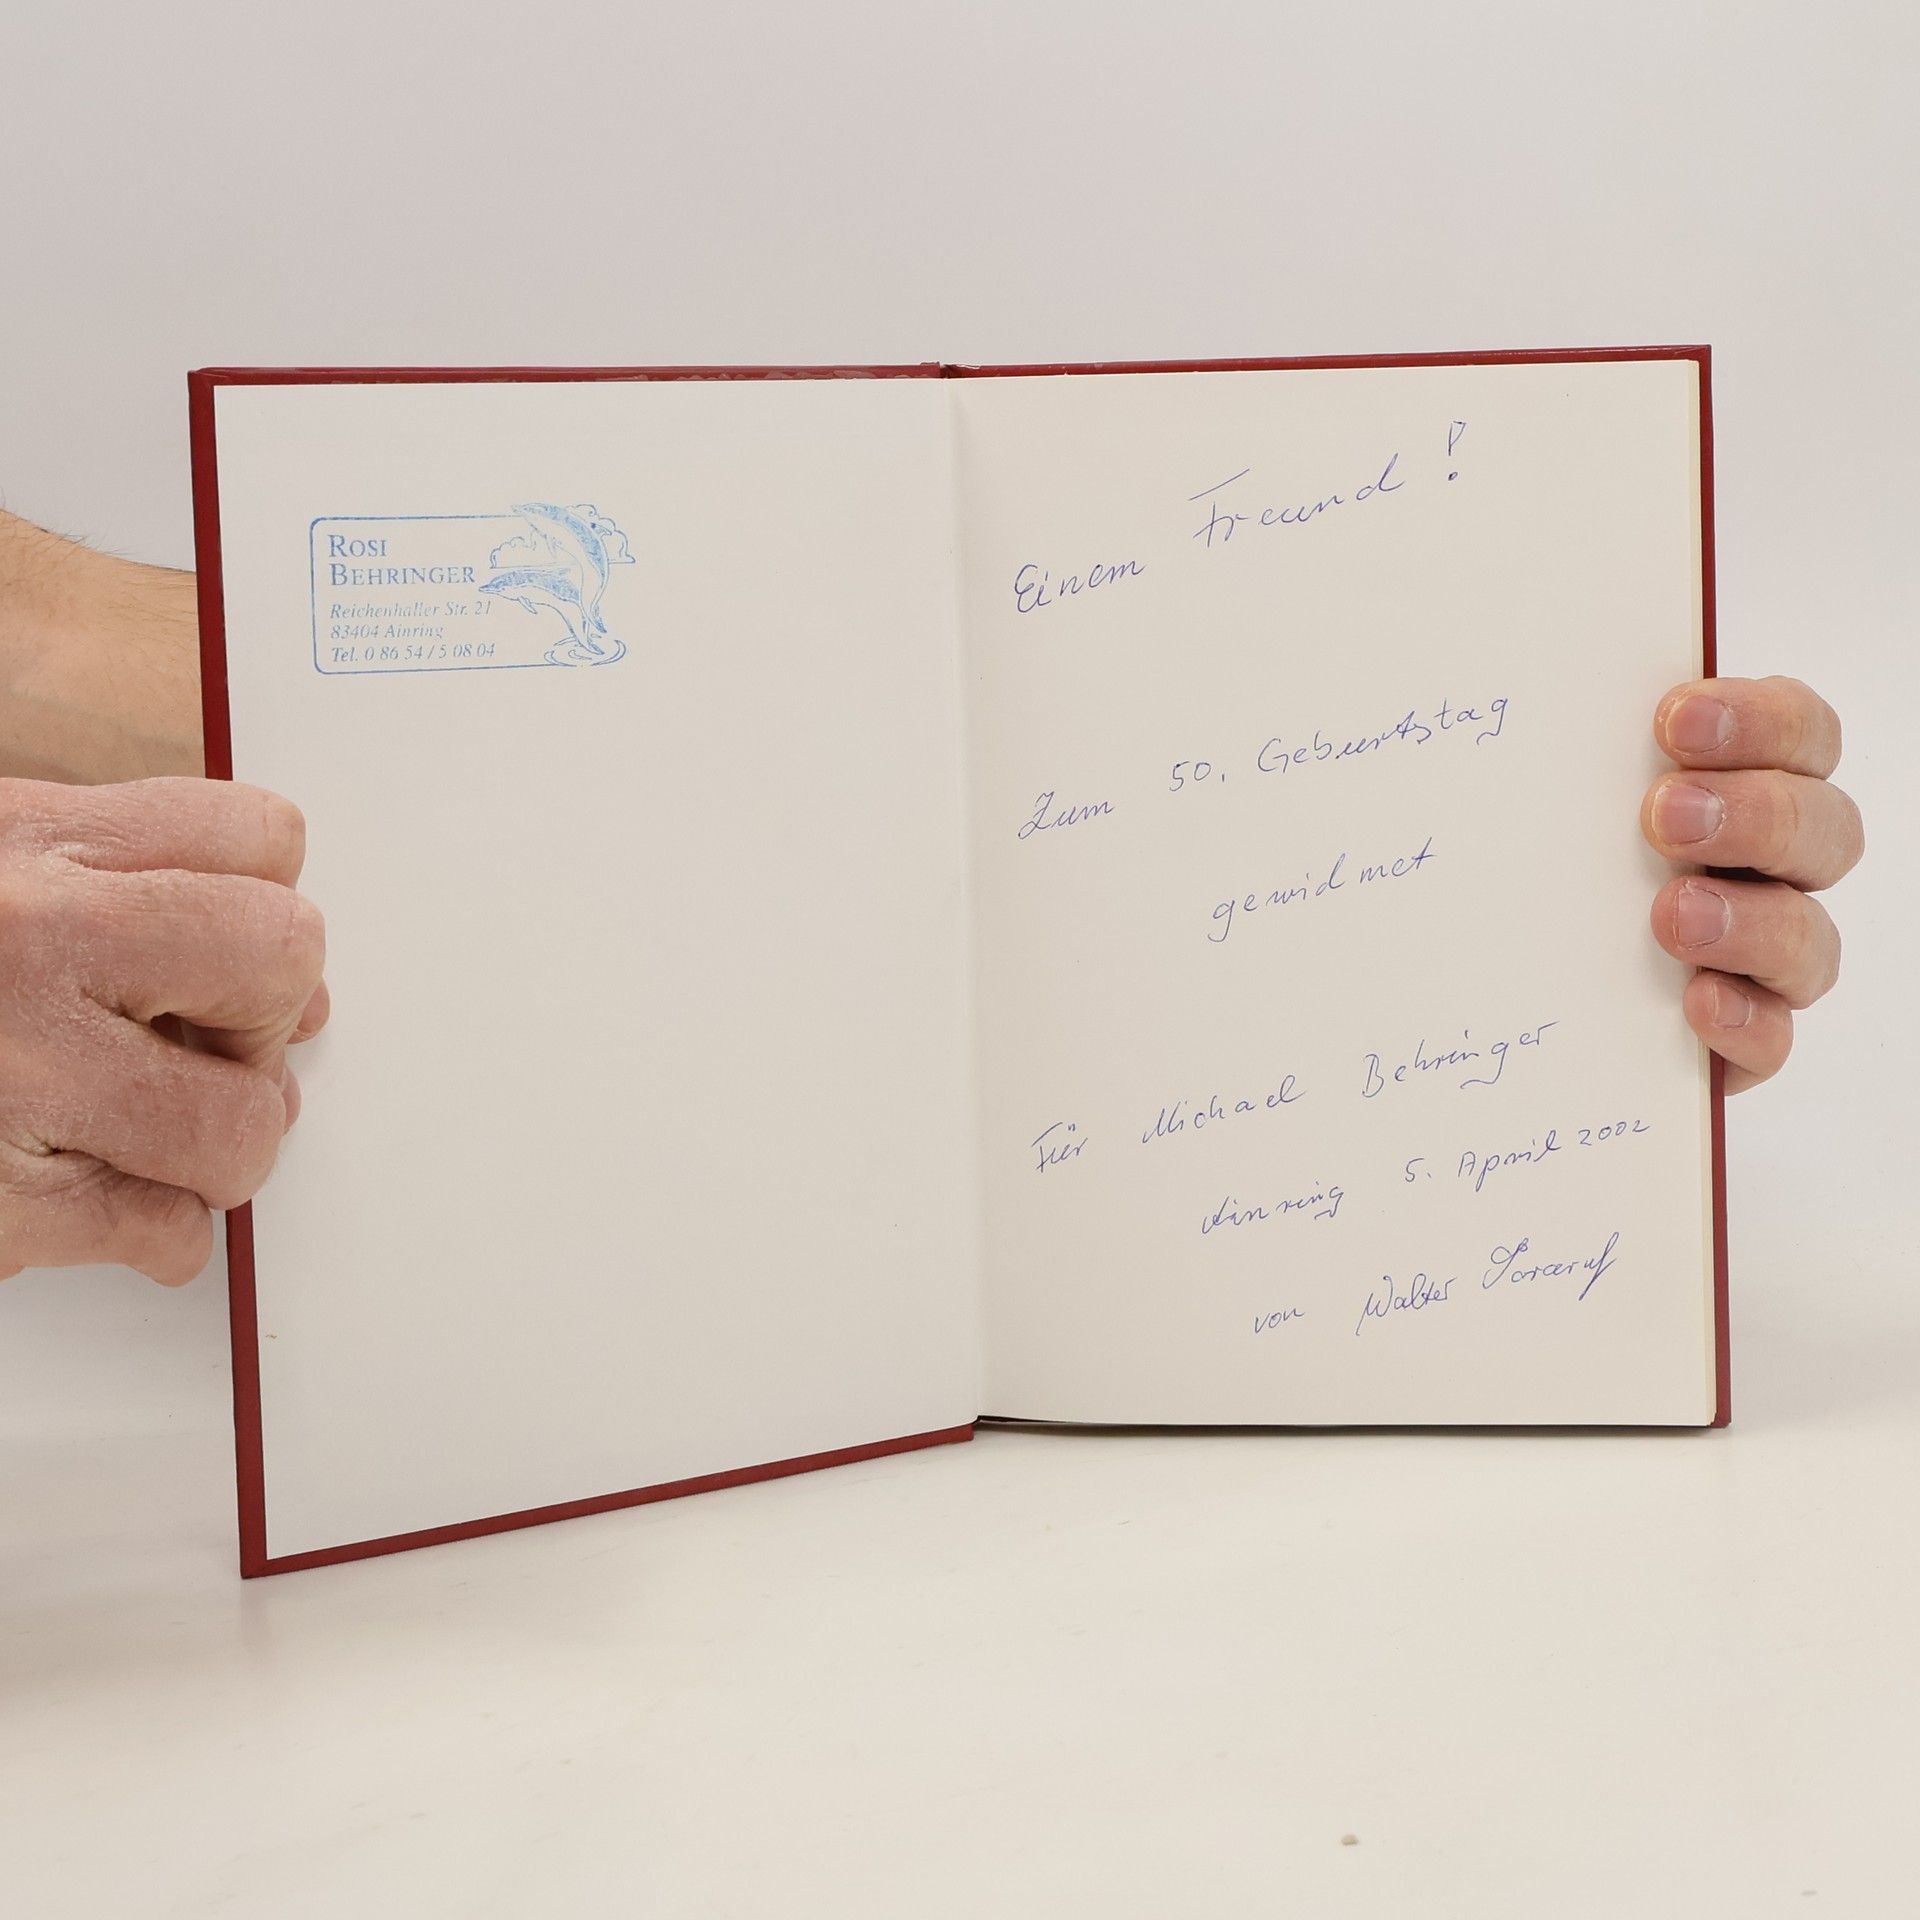 ROSI
BEHRINGER
Reichenhaller Str. 21
83404 Ainring
Tel. 0 86 54 / 5 08 04
Einem Freund!
Zum 50. Geburtstag
gewidmet
Für Michael Behringer
Ainring 5. April 2002
von Walter